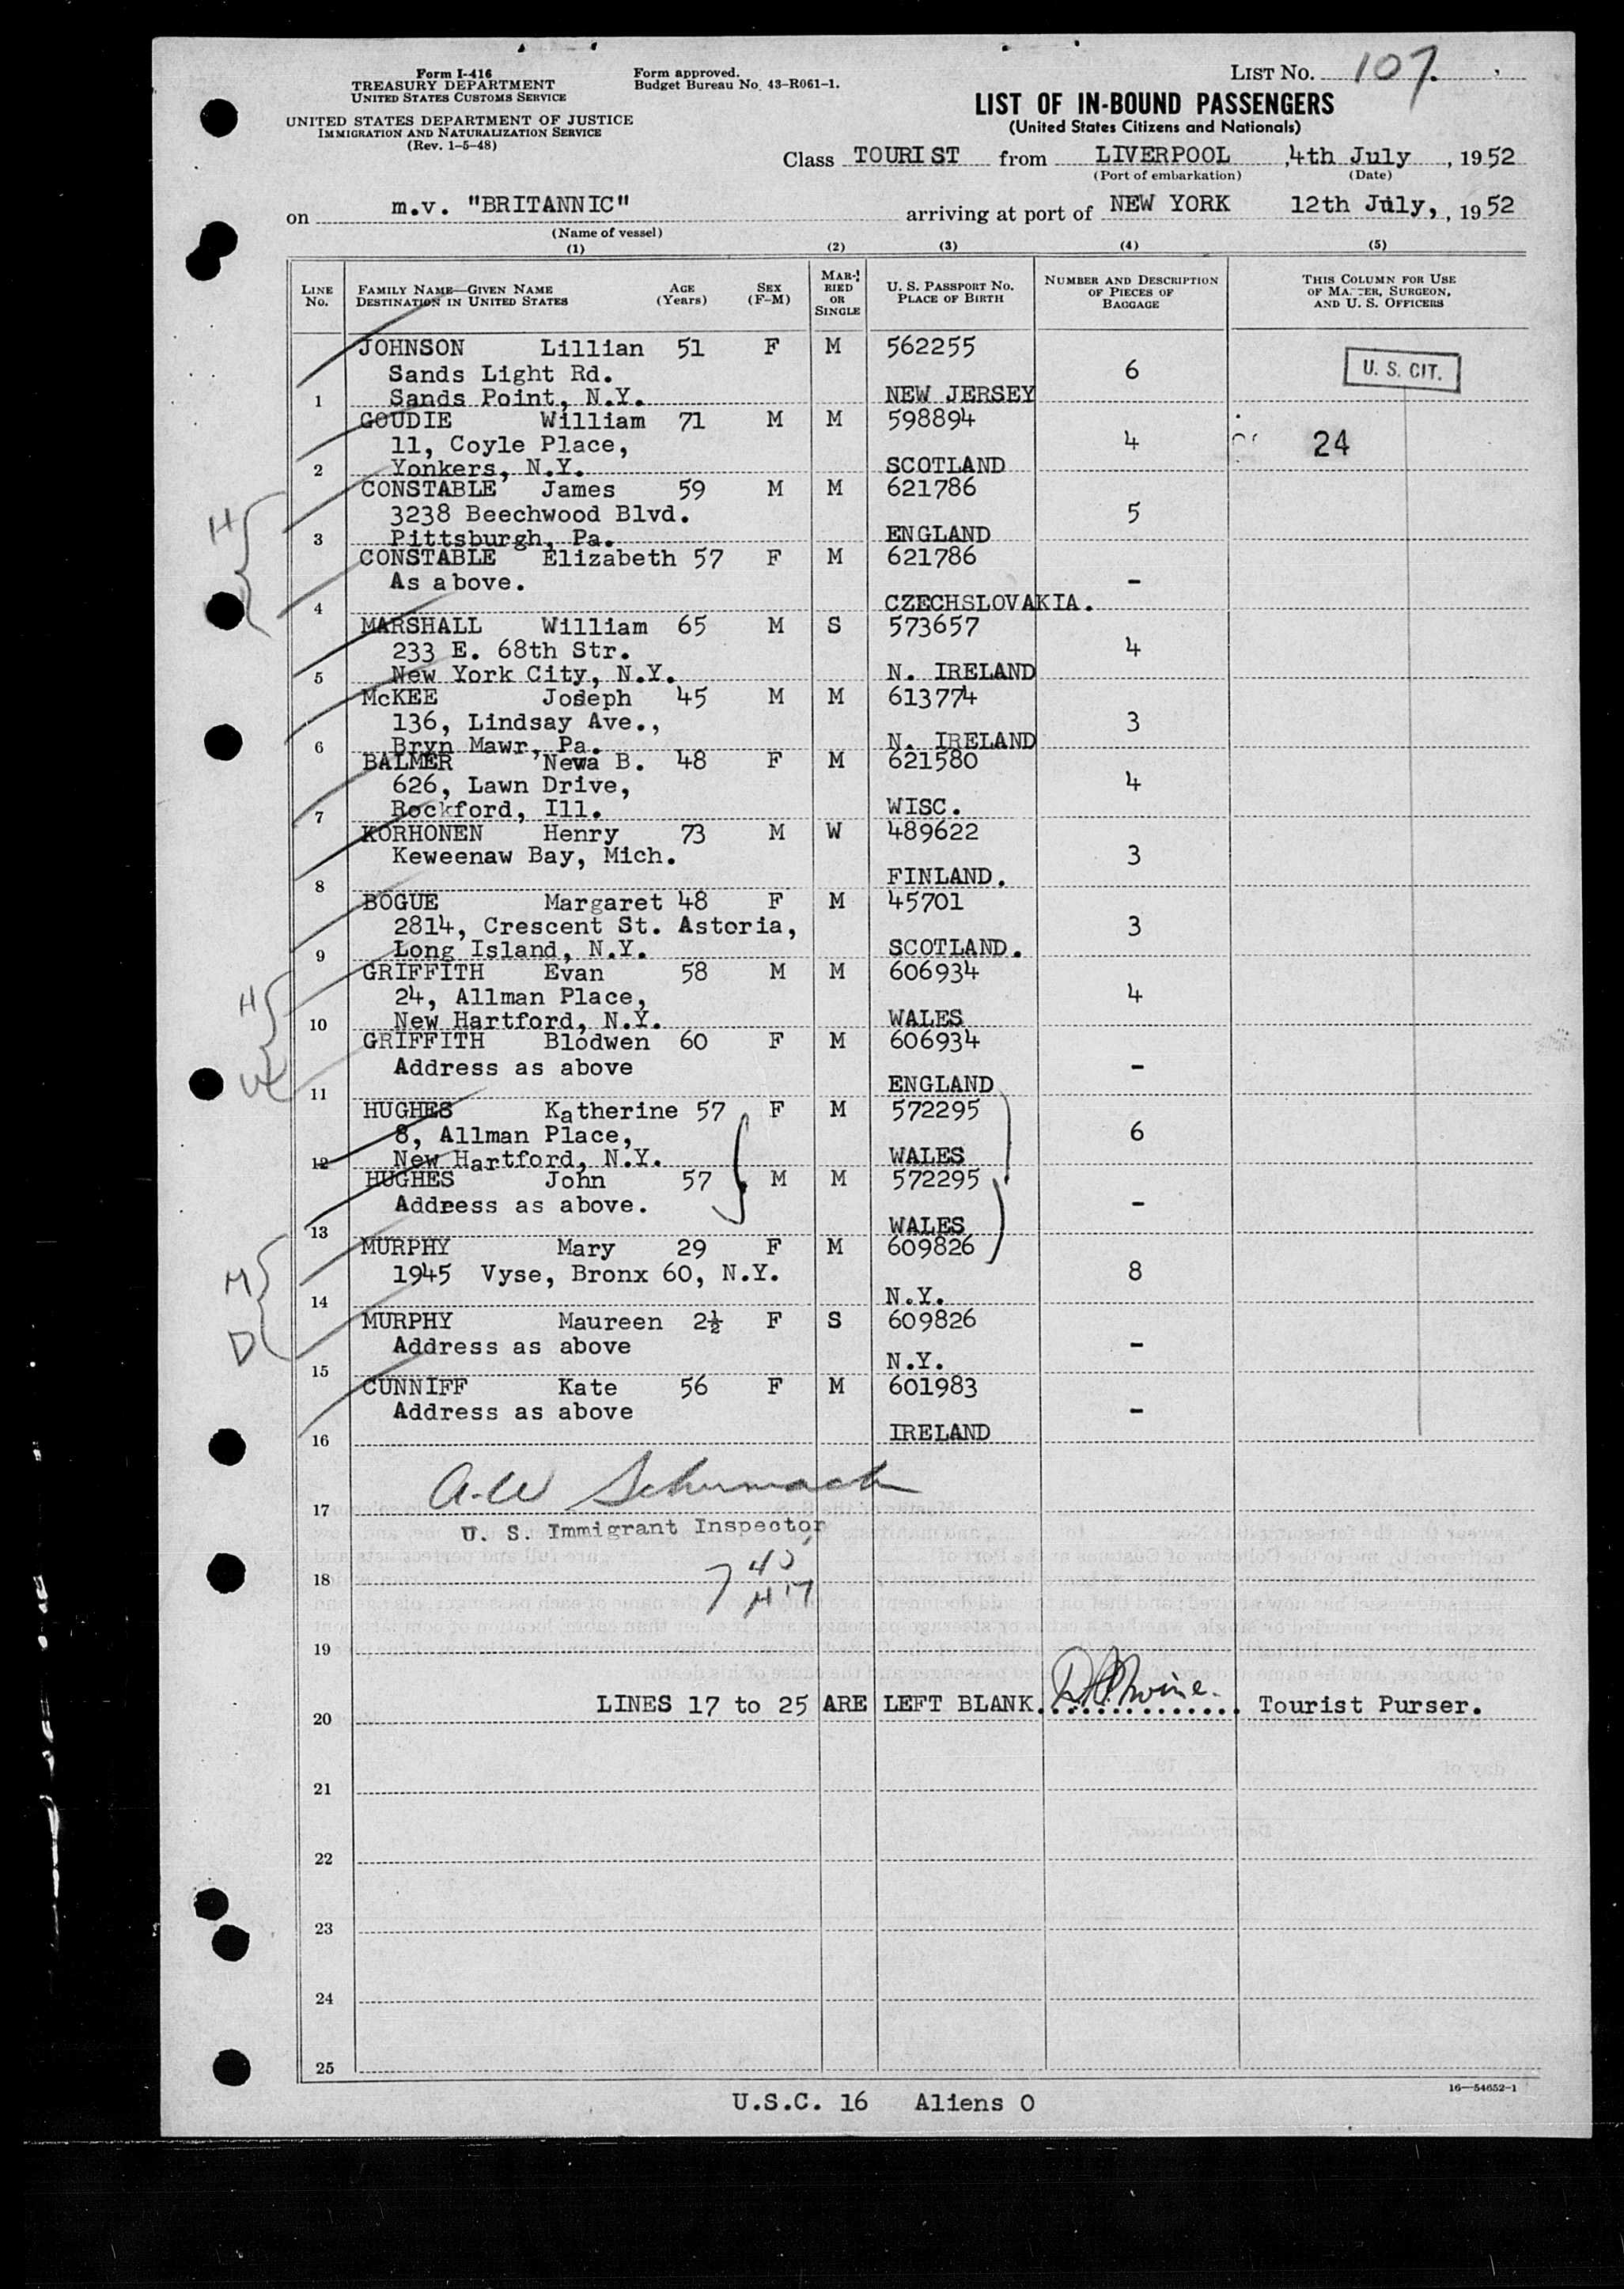 Form I-416
TREASURY DEPARTMENT
UNITED STATES CUSTOMS SERVICE
UNITED STATES DEPARTMENT OF JUSTICE
IMMIGRATION AND NATURALIZATION SERVICE
(Rev. 1-5-48)
Form approved.
Budget Bureau No. 43-R061-1.
LIST NO. 107.
LIST OF IN-BOUND PASSENGERS
(United States Citizens and Nationals)
Class TOURIST from LIVERPOOL, 4th July, 1952
(Port of embarkation) (Date)
on m.v. "BRITANNIC" arriving at port of NEW YORK 12th July, , 1952
(Name of vessel)
(1) (2) (3) (4) (5)
LINE No. FAMILY NAME—GIVEN NAME DESTINATION IN UNITED STATES AGE (Years) SEX (F-M) MARRIED OR SINGLE U. S. PASSPORT NO. PLACE OF BIRTH NUMBER AND DESCRIPTION OF PIECES OF BAGGAGE THIS COLUMN FOR USE OF MASTER, SURGEON, AND U. S. OFFICERS
JOHNSON Lillian 51 F M 562255
Sands Light Rd. 6 U. S. CIT.
1 Sands Point, N.Y. NEW JERSEY
GOUDIE William 71 M M 598894
11, Coyle Place, 4 24
2 Yonkers, N.Y. SCOTLAND
H CONSTABLE James 59 M M 621786
3238 Beechwood Blvd. 5
3 Pittsburgh, Pa. ENGLAND
CONSTABLE Elizabeth 57 F M 621786
As above. -
4 CZECHSLOVAKIA.
MARSHALL William 65 M S 573657
233 E. 68th Str. 4
5 New York City, N.Y. N. IRELAND
McKEE Joseph 45 M M 613774
136, Lindsay Ave., 3
6 Bryn Mawr, Pa. N. IRELAND
BALMER Neva B. 48 F M 621580
626, Lawn Drive, 4
7 Rockford, Ill. WISC.
KORHONEN Henry 73 M W 489622
Keweenaw Bay, Mich. 3
8 FINLAND.
BOGUE Margaret 48 F M 45701
2814, Crescent St. Astoria, 3
9 Long Island, N.Y. SCOTLAND.
H GRIFFITH Evan 58 M M 606934
24, Allman Place, 4
10 New Hartford, N.Y. WALES
W GRIFFITH Blodwen 60 F M 606934
Address as above -
11 ENGLAND
HUGHES Katherine 57 F M 572295
8, Allman Place, 6
12 New Hartford, N.Y. WALES
HUGHES John 57 M M 572295
Address as above. -
13 WALES
M MURPHY Mary 29 F M 609826
1945 Vyse, Bronx 60, N.Y. 8
14 N.Y.
D MURPHY Maureen 2½ F S 609826
Address as above -
15 N.Y.
CUNNIFF Kate 56 F M 601983
Address as above -
16 IRELAND
A.W Schumach
17
U. S. Immigrant Inspector
18
19
LINES 17 to 25 ARE LEFT BLANK. Tourist Purser.
20
21
22
23
24
25
16—54652-1
U.S.C. 16 Aliens 0